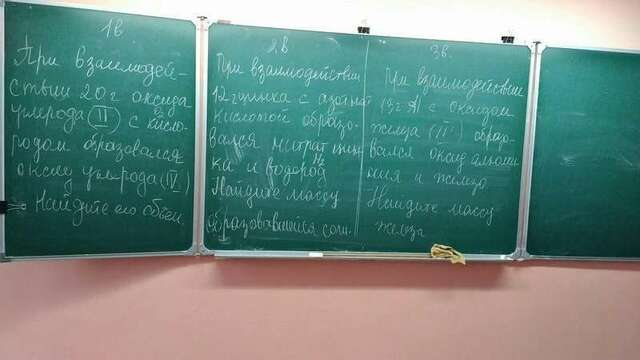 1в
При взаимодей-
ствии 20 г оксида
углерода (II) с кисло-
O2
родом образовался
оксид углерода (IV).
Найдите его объём.
2в
При взаимодействии
12 г цинка с азотной
кислотой образо-
вался нитрат цин-
ка и водород
H2
Найдите массу
образовавшейся соли.
3в.
При взаимодействии
13 г Al с оксидом
железа (II) образо-
вался оксид алюми
ния и железо
Найдите массу
железа